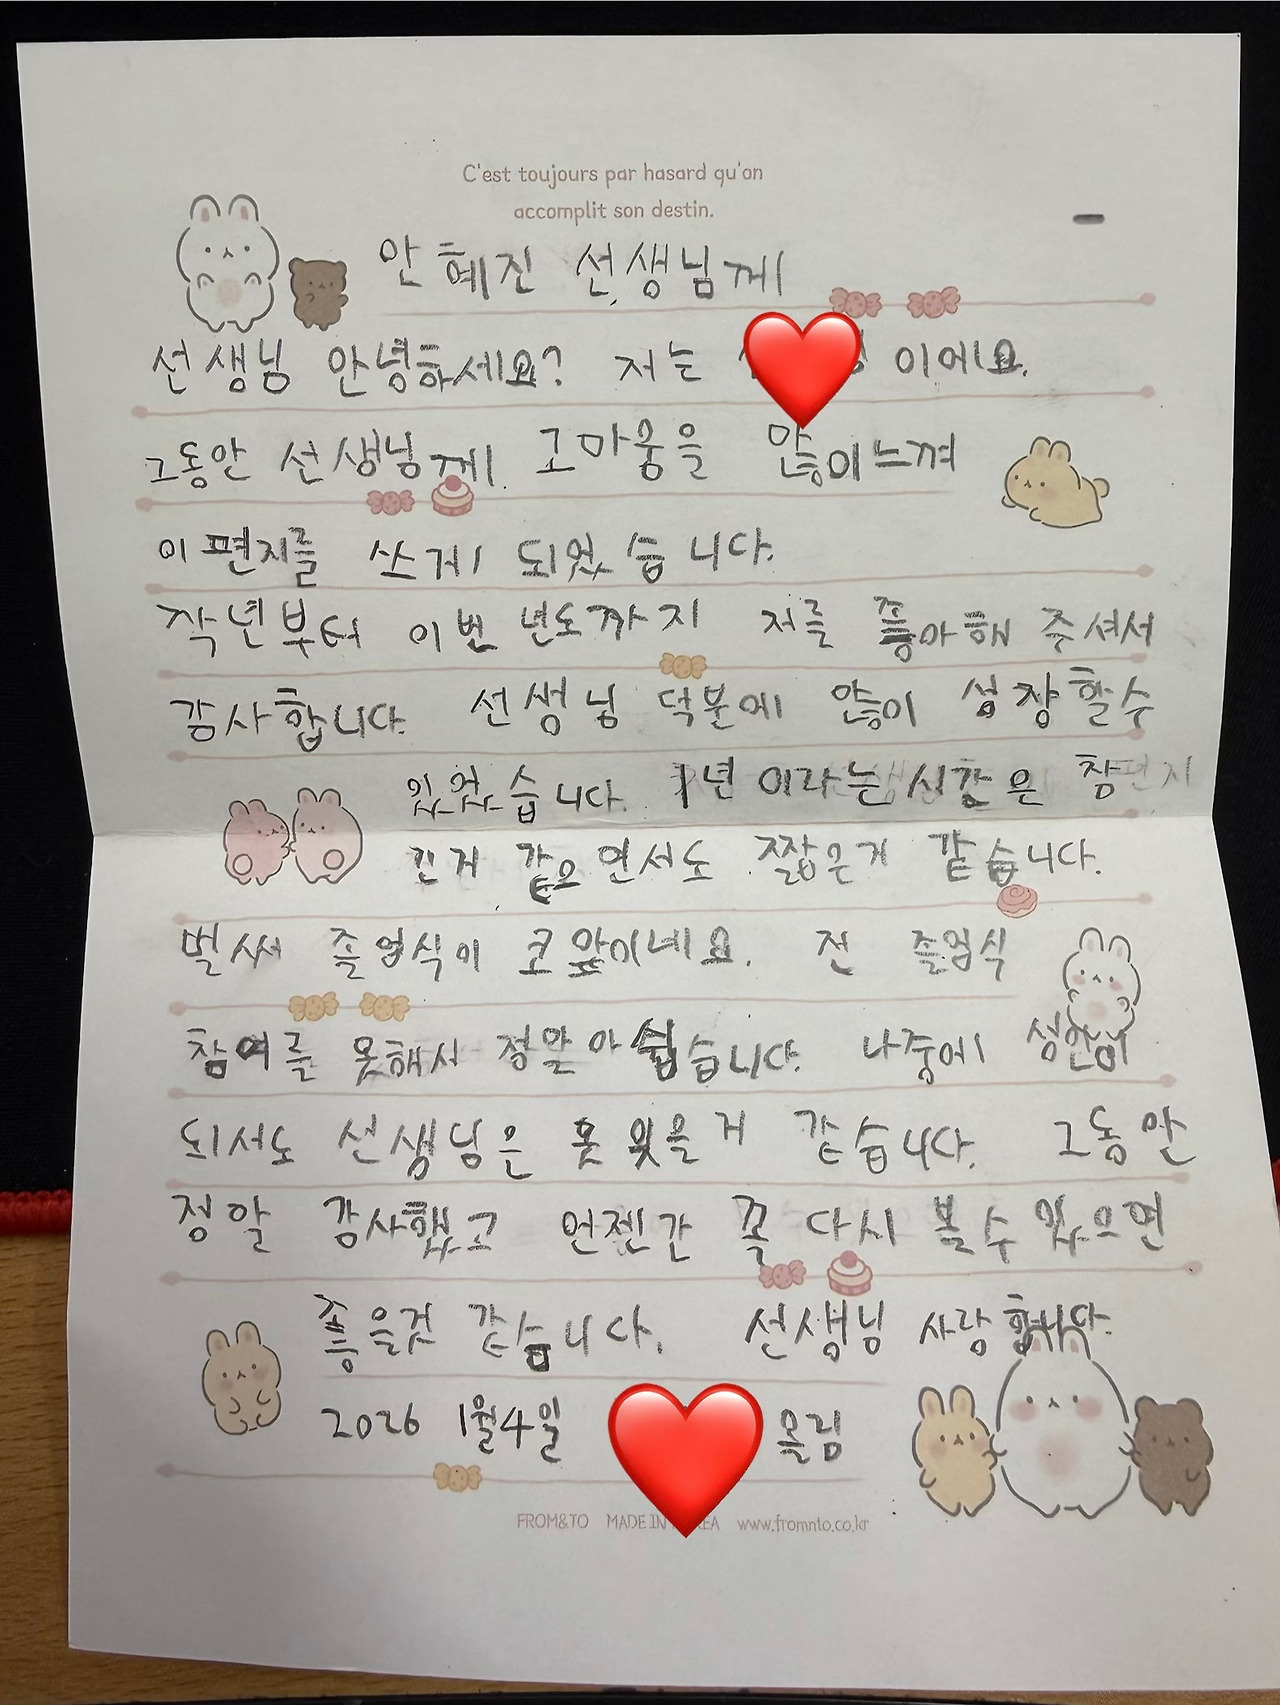 C'est toujours par hasard qu'on
accomplit son destin.
안혜진 선생님께
선생님 안녕하세요? 저는 이에요.
그동안 선생님께 고마움을 많이느껴
이 편지를 쓰게 되었습니다.
작년부터 이번 년도까지 저를 좋아해 주셔서
감사합니다. 선생님 덕분에 많이 성장할수
있었습니다. 1년 이라는 시간은 참
긴거 같으면서도 짧은거 같습니다.
벌써 졸업식이 코앞이네요. 전 졸업식
참여를 못해서 정말 아쉽습니다. 나중에 성인이
되서도 선생님은 못 잊을거 같습니다. 그동안
정말 감사했고 언젠간 꼭 다시 볼수 있으면
좋을것 같습니다. 선생님 사랑합니다.
2026 1월4일 올림
FROM&TO MADE IN KOREA www.fromnto.co.kr